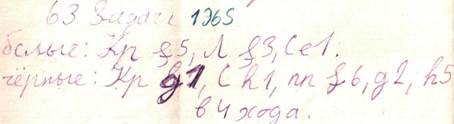 63 Задача 1965
белые: Кр f5, Л f3, Се1.
чёрные: Кр g1, С h1, пп f6, g2, h5
в 4 хода.